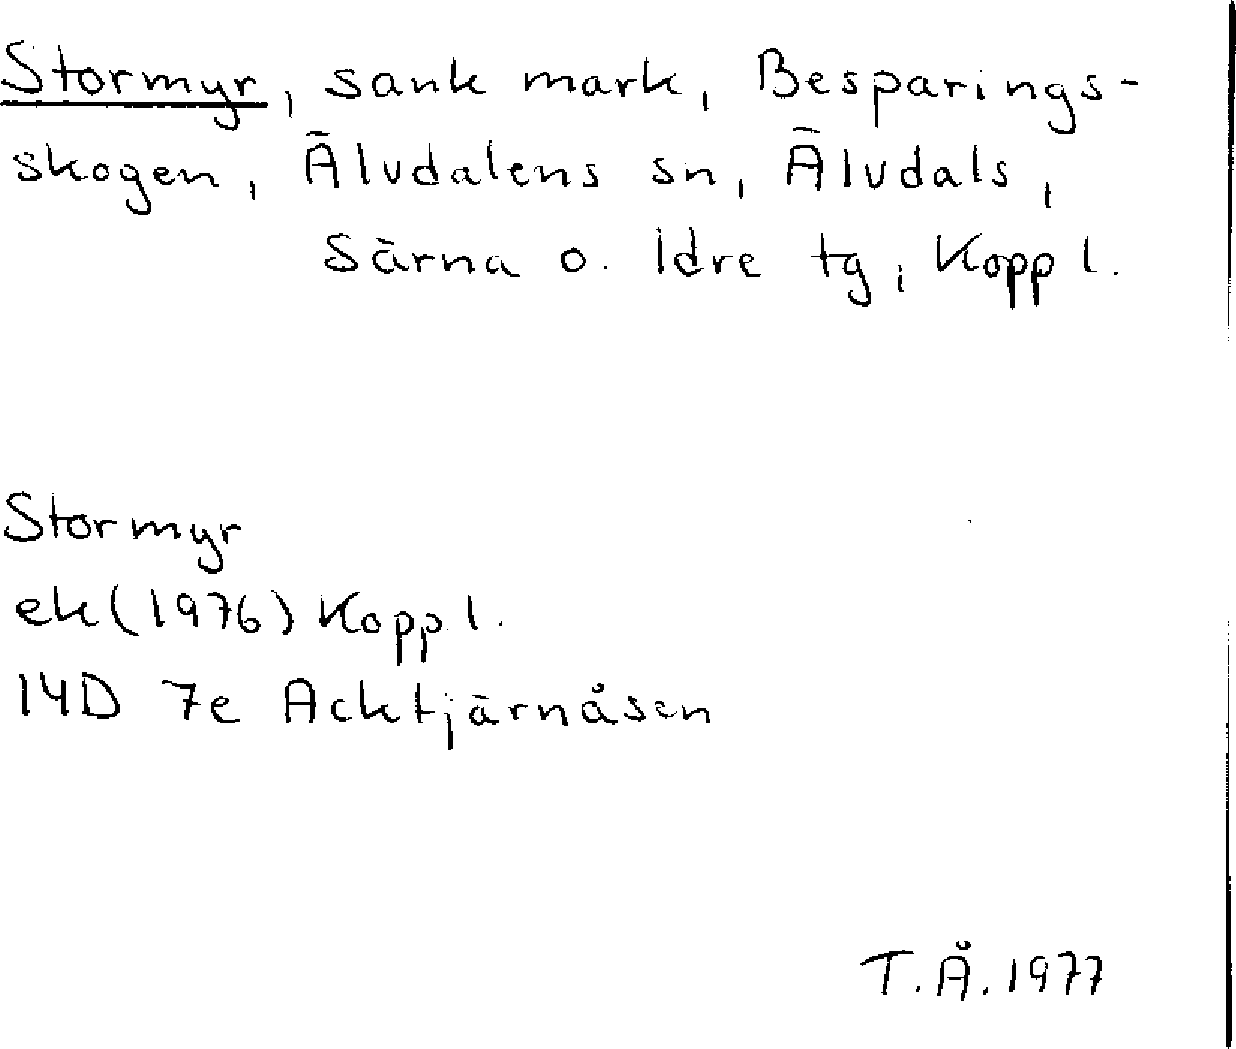 Stormyr, sank mark, Besparings-
skogen, Älvdalens sn, Älvdals,
Särna o. Idre tg, Kopp l.
Stormyr
ek (1976) Kopp l.
14D 7e Acktjärnåsen
T.Å. 1977